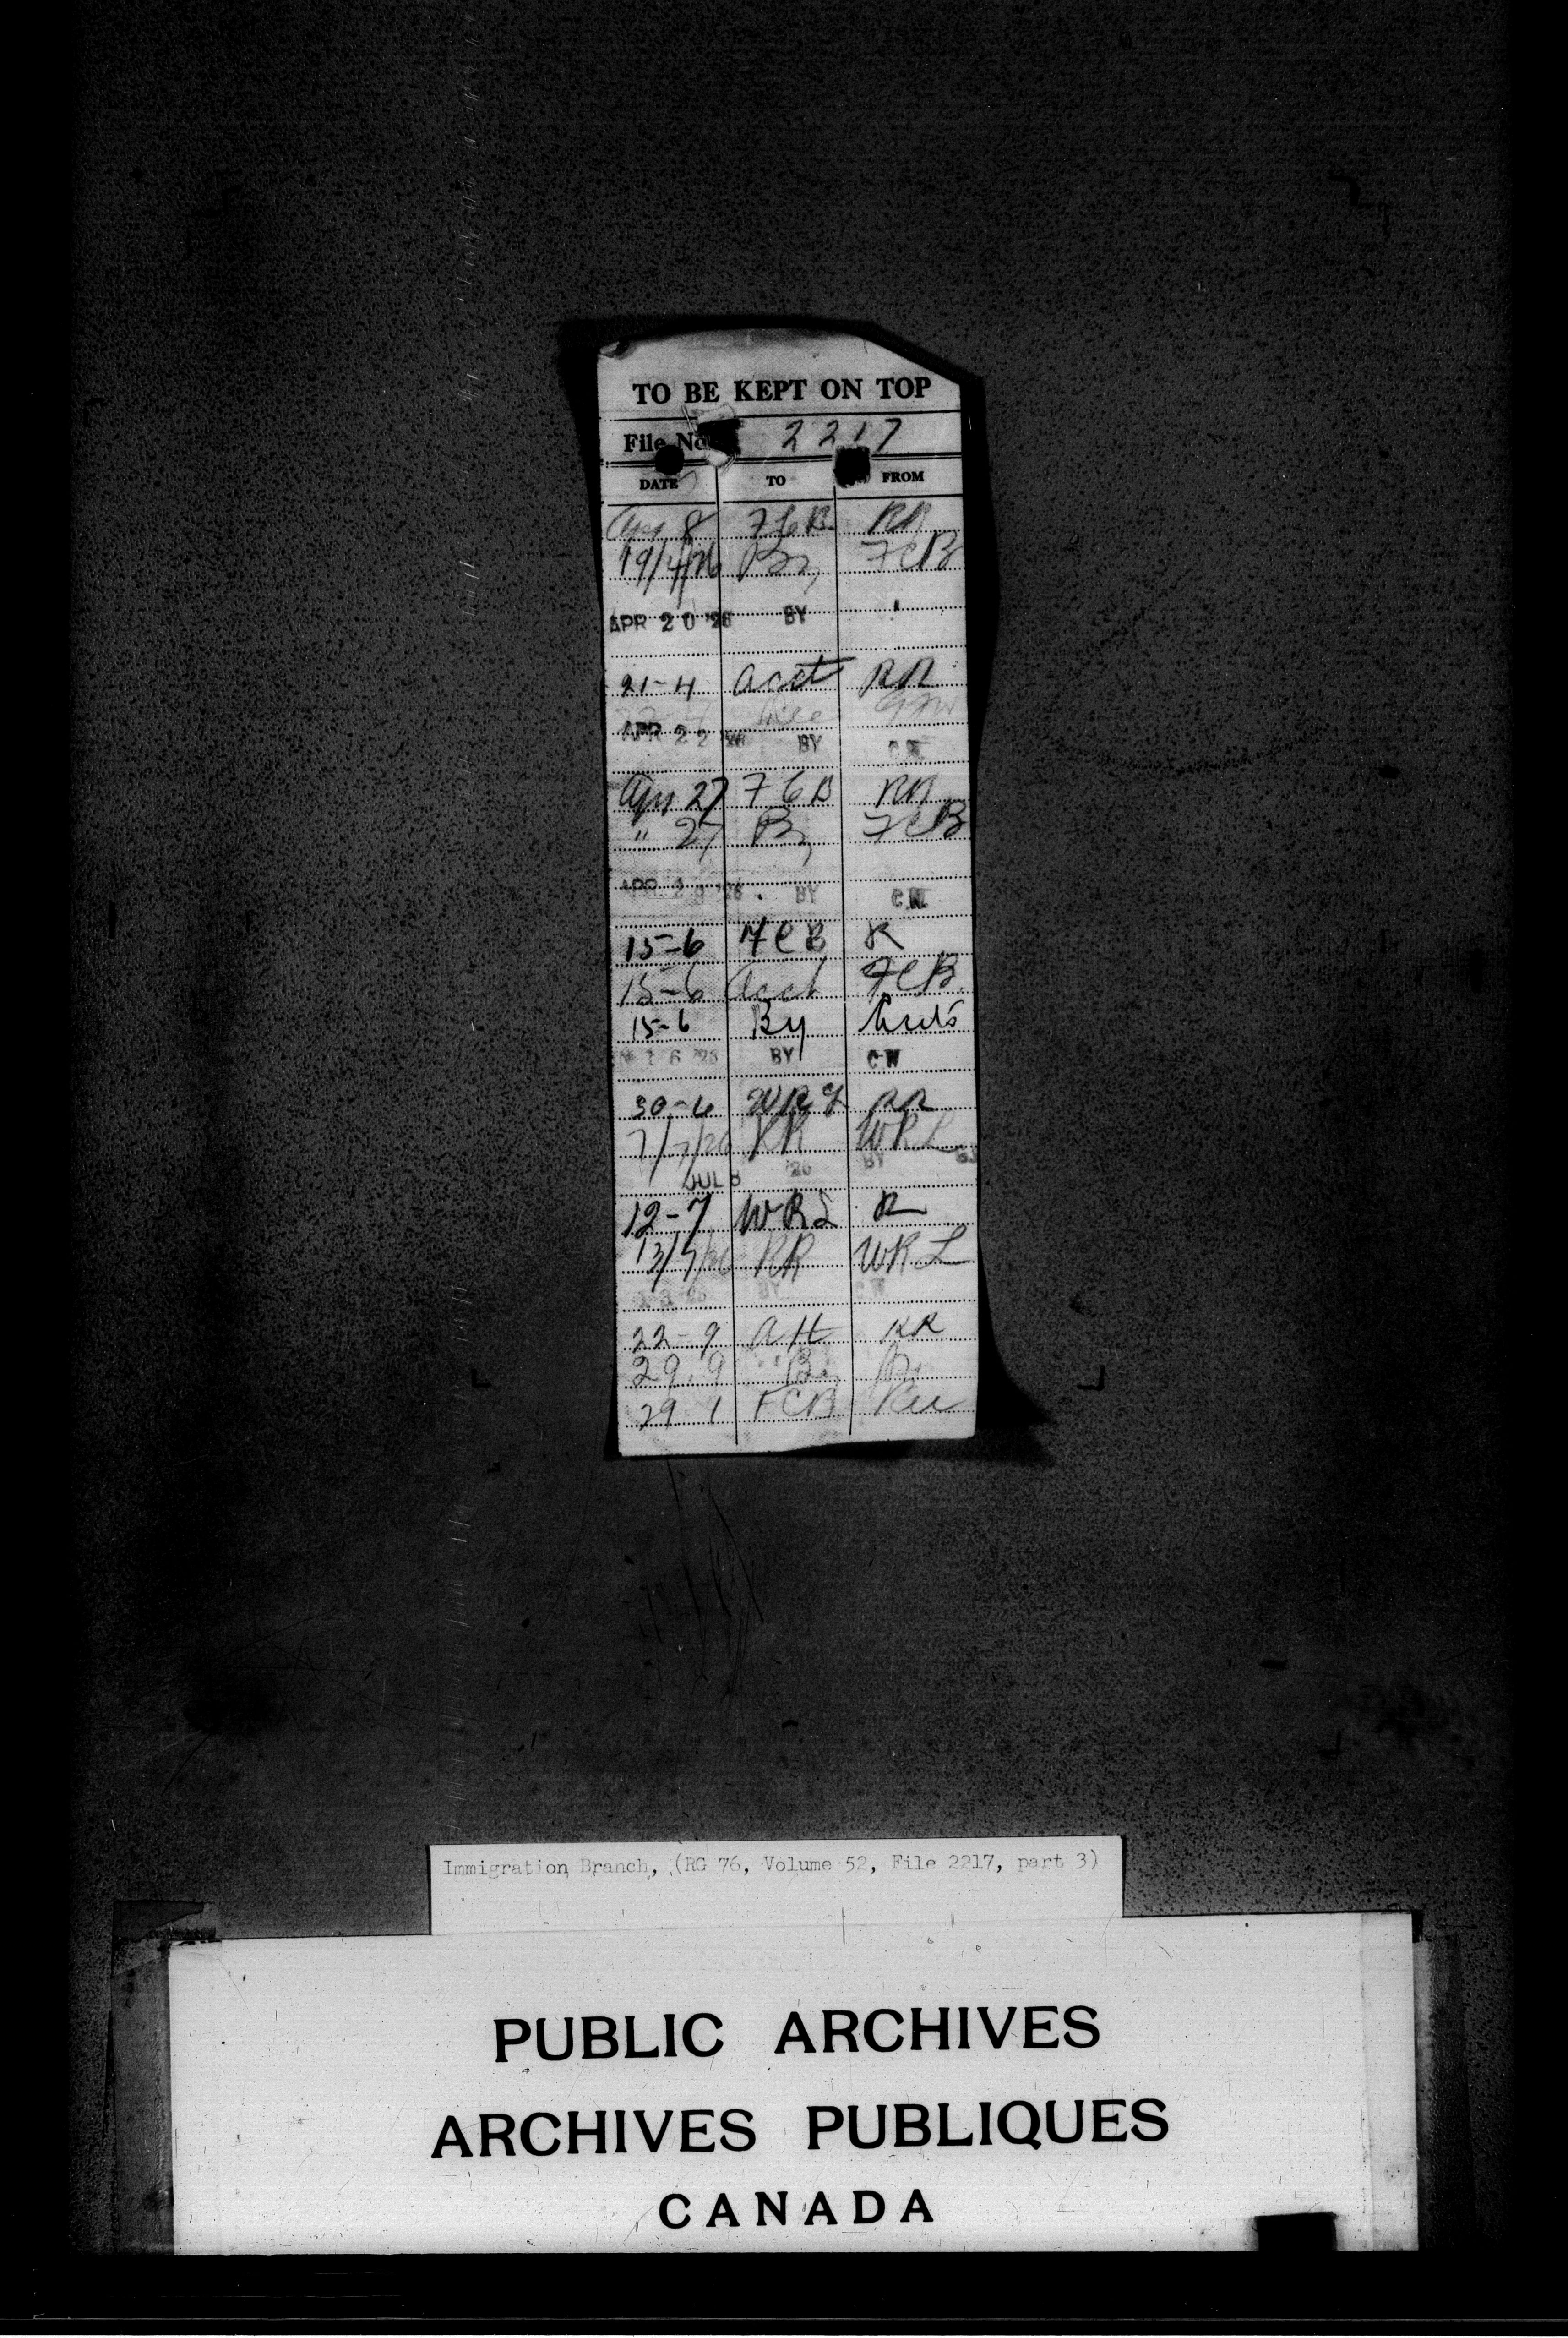 TO BE KEPT ON TOP
File No 2217
DATE TO FROM
8 FCB RR
19/4/26 By FCB
APR 20 '26 BY
21-4 Acct RR
APR 22 '26 BY C.W.
Apr 27 FCB RR
" 27 By FCB
APR 28 '26 BY C.W.
15-6 FCB R
15-6 Acct FCB
15-6 By
16 '26 BY C.W
30-6 WRL RR
7/7/26 RR WRL
JUL 8 '26 BY
12-7 WRL R
13/7/26 RR WRL
BY
22-9 AH RR
29.9 By
29 FCB
Immigration Branch, (RG 76, Volume 52, File 2217, part 3)
PUBLIC ARCHIVES
ARCHIVES PUBLIQUES
CANADA